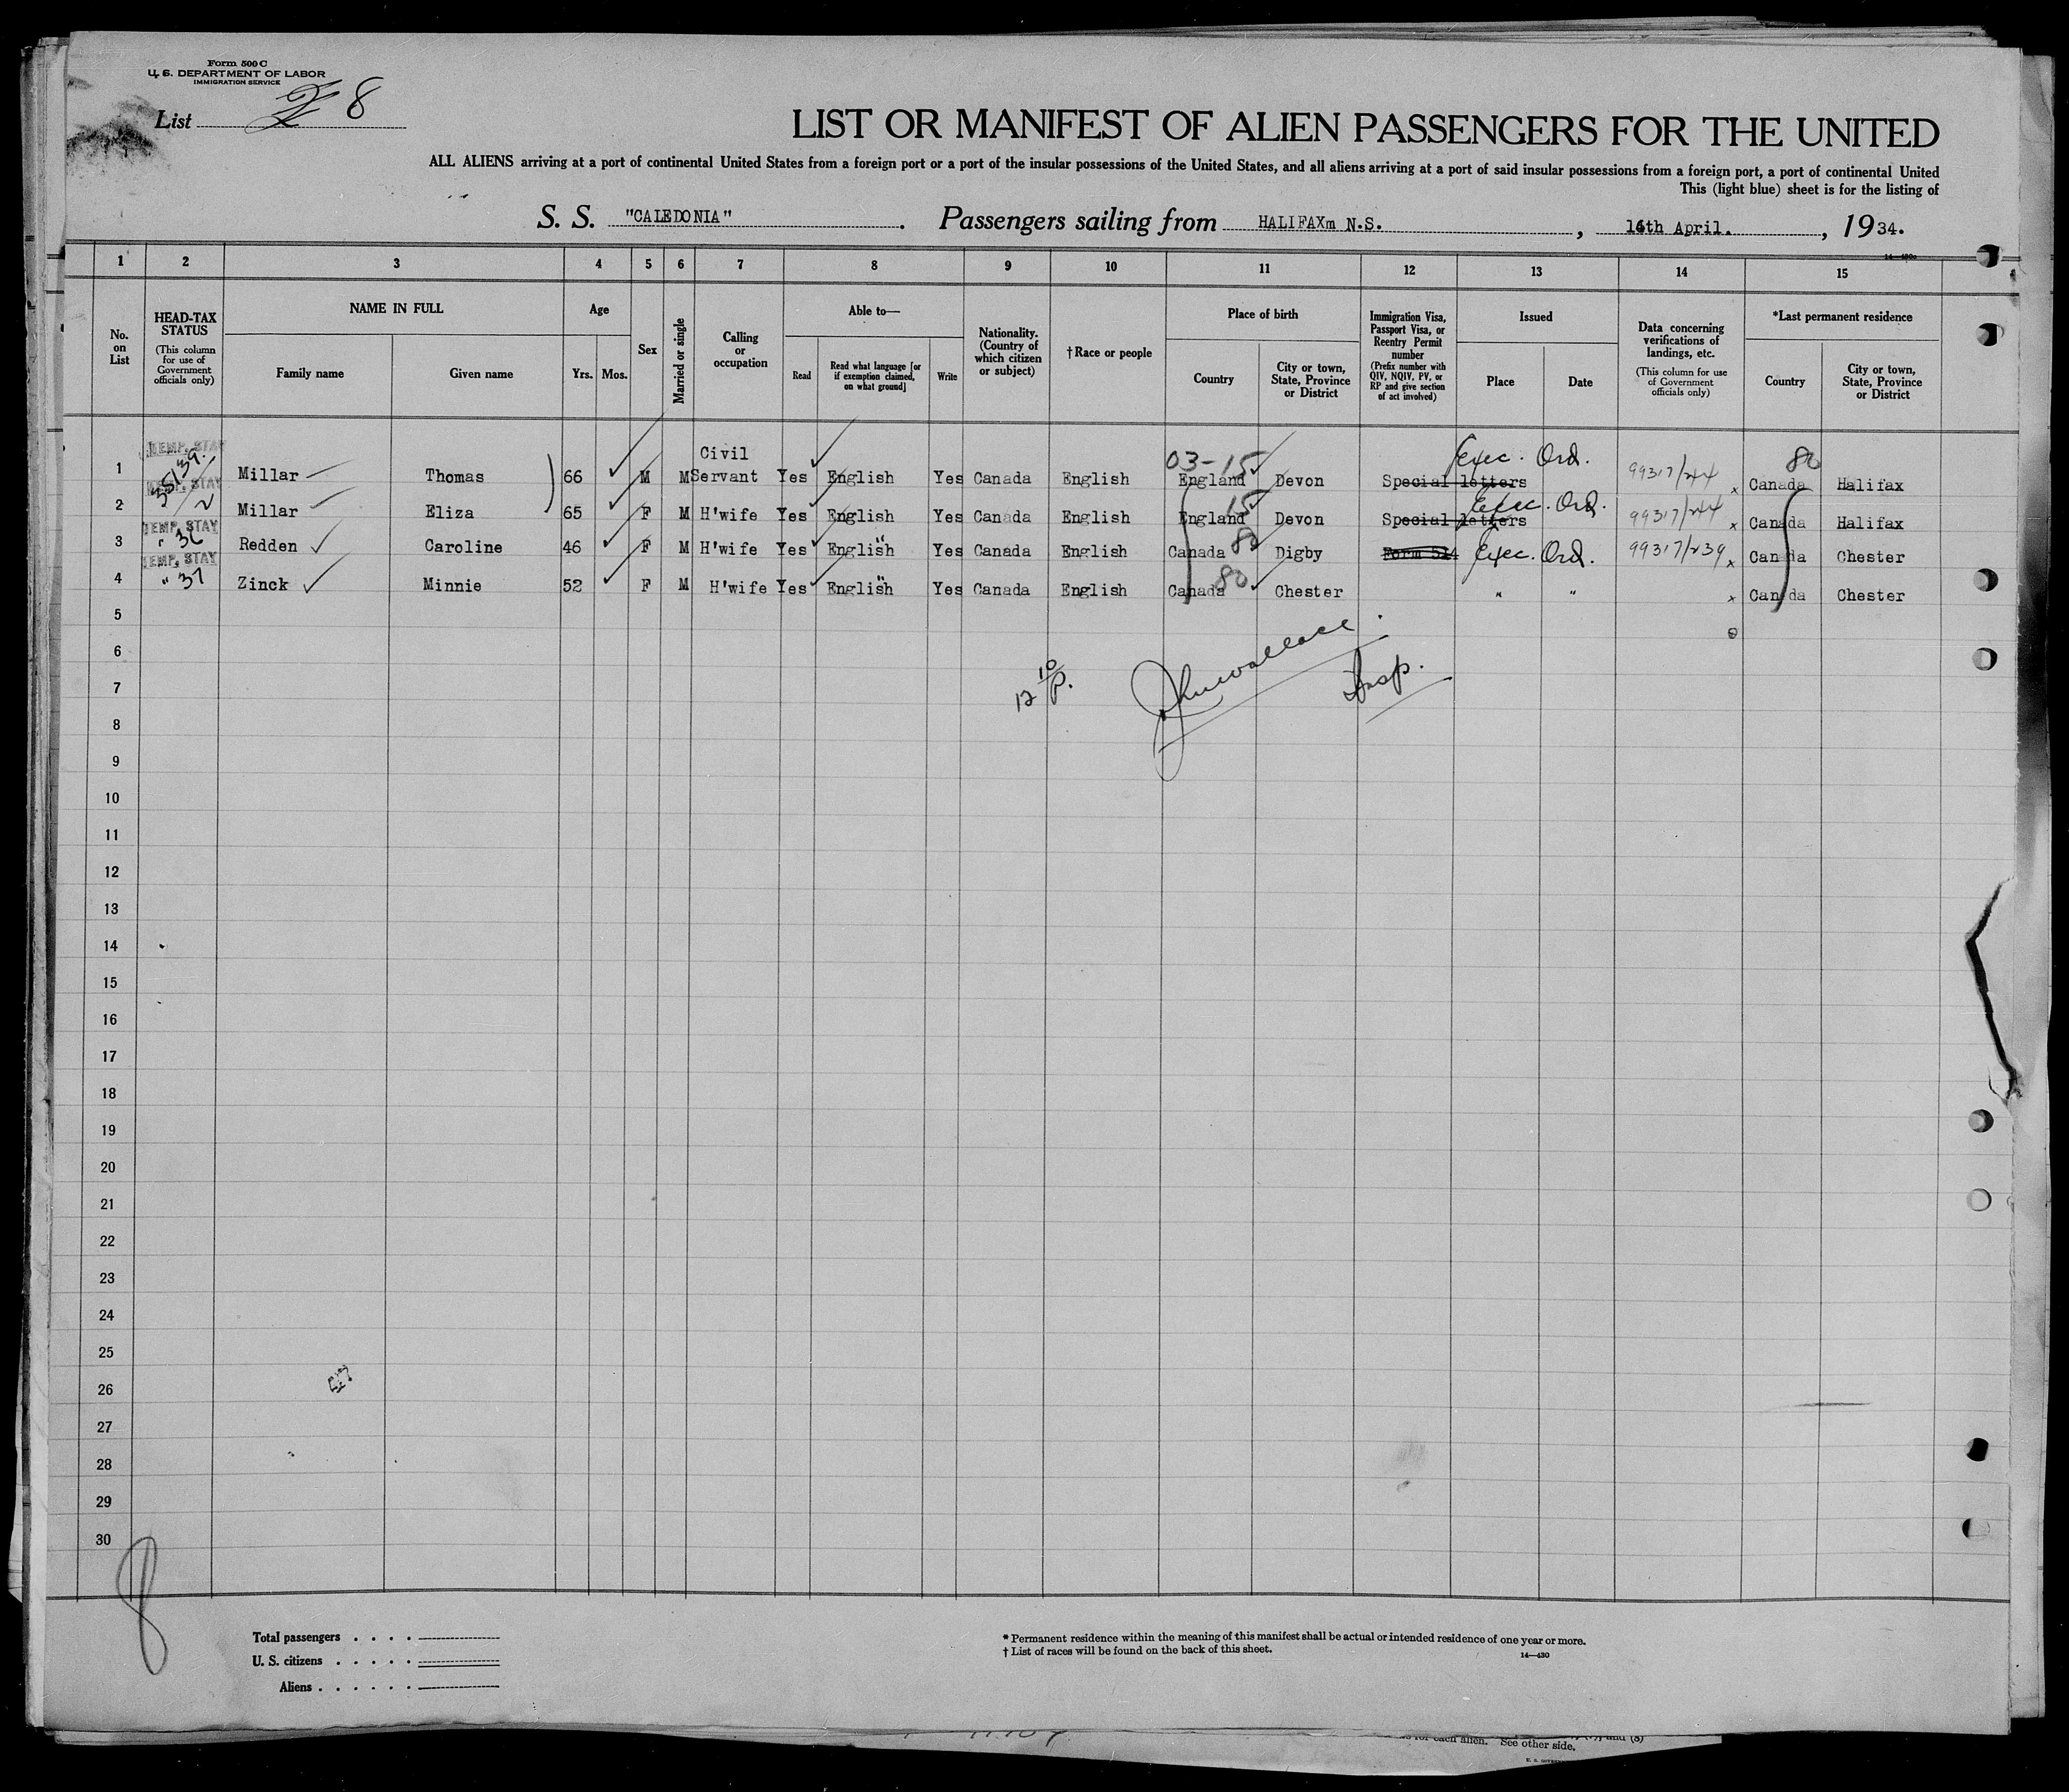 Form 500 C
U. S. DEPARTMENT OF LABOR
IMMIGRATION SERVICE
List 8
LIST OR MANIFEST OF ALIEN PASSENGERS FOR THE UNITED
ALL ALIENS arriving at a port of continental United States from a foreign port or a port of the insular possessions of the United States, and all aliens arriving at a port of said insular possessions from a foreign port, a port of continental United
This (light blue) sheet is for the listing of
S. S. "CALEDONIA" . Passengers sailing from HALIFAXm N.S. , 16th April. , 1934.
14—430c
1 2 3 4 5 6 7 8 9 10 11 12 13 14 15
No. on List
HEAD-TAX STATUS
(This column for use of Government officials only)
NAME IN FULL
Family name
Given name
Age
Yrs. Mos.
Sex
Married or single
Calling or occupation
Able to—
Read
Read what language [or if exemption claimed, on what ground]
Write
Nationality. (Country of which citizen or subject)
†Race or people
Place of birth
Country
City or town, State, Province or District
Immigration Visa, Passport Visa, or Reentry Permit number
(Prefix number with QIV, NQIV, PV, or RP and give section of act involved)
Issued
Place
Date
Data concerning verifications of landings, etc.
(This column for use of Government officials only)
*Last permanent residence
Country
City or town, State, Province or District
TEMP. STAY Civil 03-15 Exec. Ord. 80
1 35139. Millar Thomas 66 M M Servant Yes English Yes Canada English England Devon Special letters 99317/244 x Canada Halifax
TEMP. STAY 15 Exec. Ord.
2 Millar Eliza 65 F M H'wife Yes English Yes Canada English England Devon Special letters 99317/244 x Canada Halifax
TEMP. STAY
3 " 36 Redden Caroline 46 F M H'wife Yes English " Yes Canada English Canada 80 Digby Form 514 Exec. Ord. 99317/239 x Canada Chester
TEMP. STAY
4 " 37 Zinck Minnie 52 F M H'wife Yes English " Yes Canada English Canada 80 Chester " " x Canada Chester
5
6
7
12 10/P.
Jhnwallace.
Insp.
8
9
10
11
12
13
14
15
16
17
18
19
20
21
22
23
24
25
26
27
28
29
30
8
Total passengers . . . .
U. S. citizens . . . . .
Aliens . . . . . .
* Permanent residence within the meaning of this manifest shall be actual or intended residence of one year or more.
† List of races will be found on the back of this sheet.
14—430
for each alien. See other side.